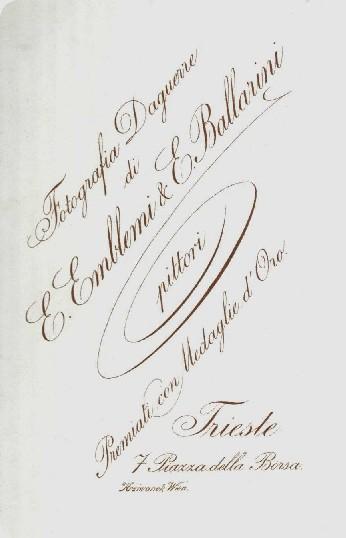 Fotografia Daguerre
di
E. Emblemi & E. Ballarini
pittori
Premiati con Medaglie d'Oro
Trieste
7 Piazza della Borsa.
Wien.